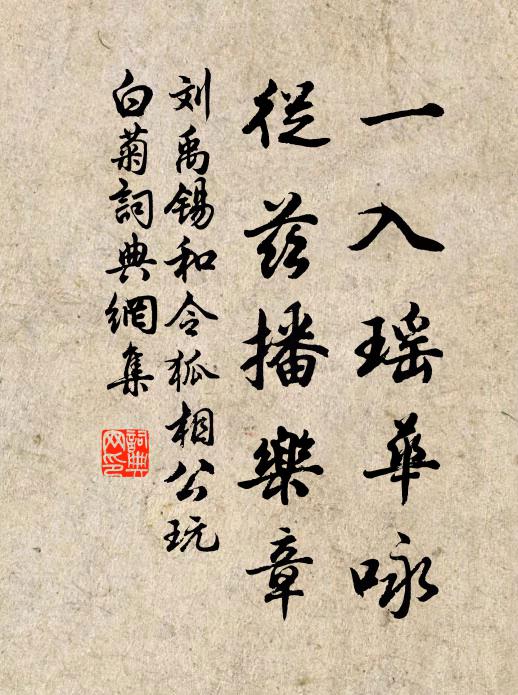 一入瑶華咏
從兹播樂章
刘禹锡和令狐相公玩
白菊詞典網集
詞典
网印